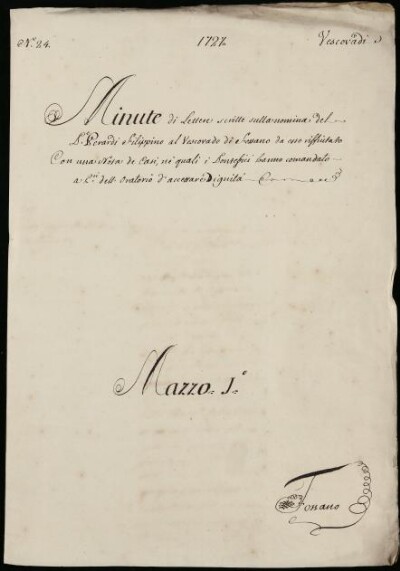 N.º 24. 1727. Vescovadi
Minute di Lettere scritte sulla nomina del
P. Verardi Filippino al Vescovado di Fossano da esso riffiutato
Con una Nota de Casi, ne' quali i Pontefici hanno comandato
a P.ri dell' Oratorio d'accettare Dignità
Mazzo. 1.º
Fossano